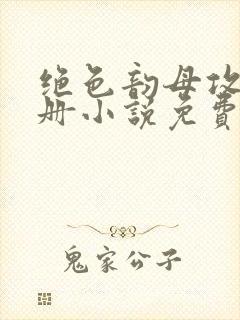 绝色韵母攻
册小说免费
鬼家公子